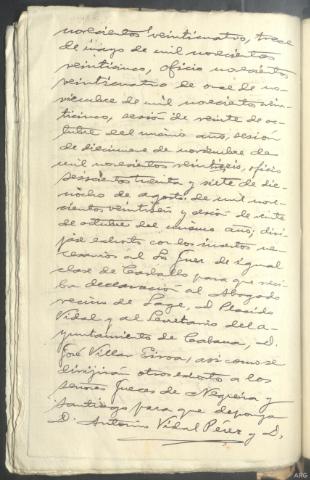 novecientos veinticuatro, trece
de mayo de mil novecientos
veinticinco, oficio novecientos
veinticuatro de once de no-
viembre de mil novecientos vein-
ticinco, sesión de veinte de oc-
tubre del mismo año, sesión
de diecinueve de noviembre de
mil novecientos veintiseis, oficio
seiscientos treinta y siete de die-
ciocho de agosto de mil nove-
cientos veintiseis y sesión de siete
de octubre del mismo año; dirí-
jase exhorto con los insertos ne-
cesarios al Sr Juez de igual
clase de Carballo para que reci-
ba declaración al Abogado
vecino de Lage, D. Placido
Vidal y al Secretario del A-
yuntamiento de Cabana, D.
José Villar, así como se
dirijirá otro exhorto a los
señores Jueces de Negreira y
Santiago para que deponga
D. Antonio Vidal Pérez y D.
ARG